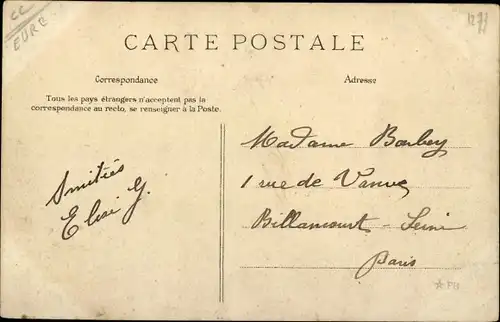 CC
EURE
1271
CARTE POSTALE
Correspondance
Adresse
Tous les pays étrangers n'acceptent pas la
correspondance au recto, se renseigner à la Poste.
Amitiés
G.
Madame Barbey
1 rue de Vanve
Billancourt - Seine
Paris